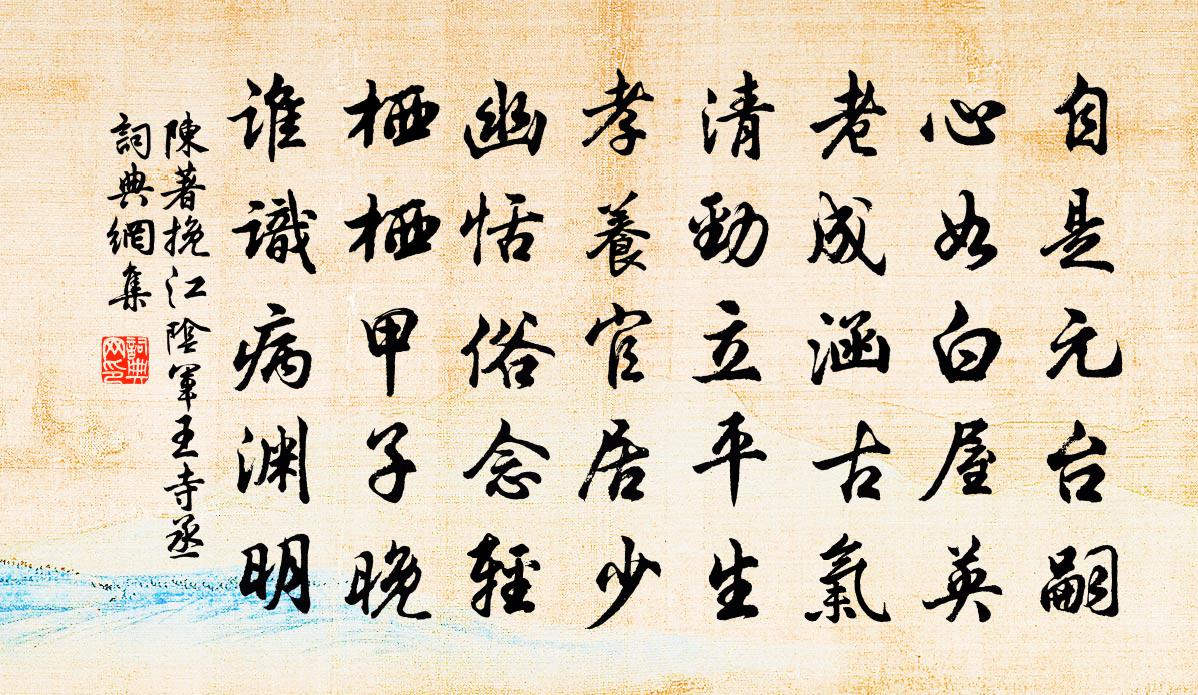 自是元台嗣
心如白屋英
老成涵古氣
清勁立平生
孝養官居少
幽恬俗念輕
栖栖甲子晚
谁識病渊明
陳著挽江陰軍王寺丞
詞典網集
詞典
网印